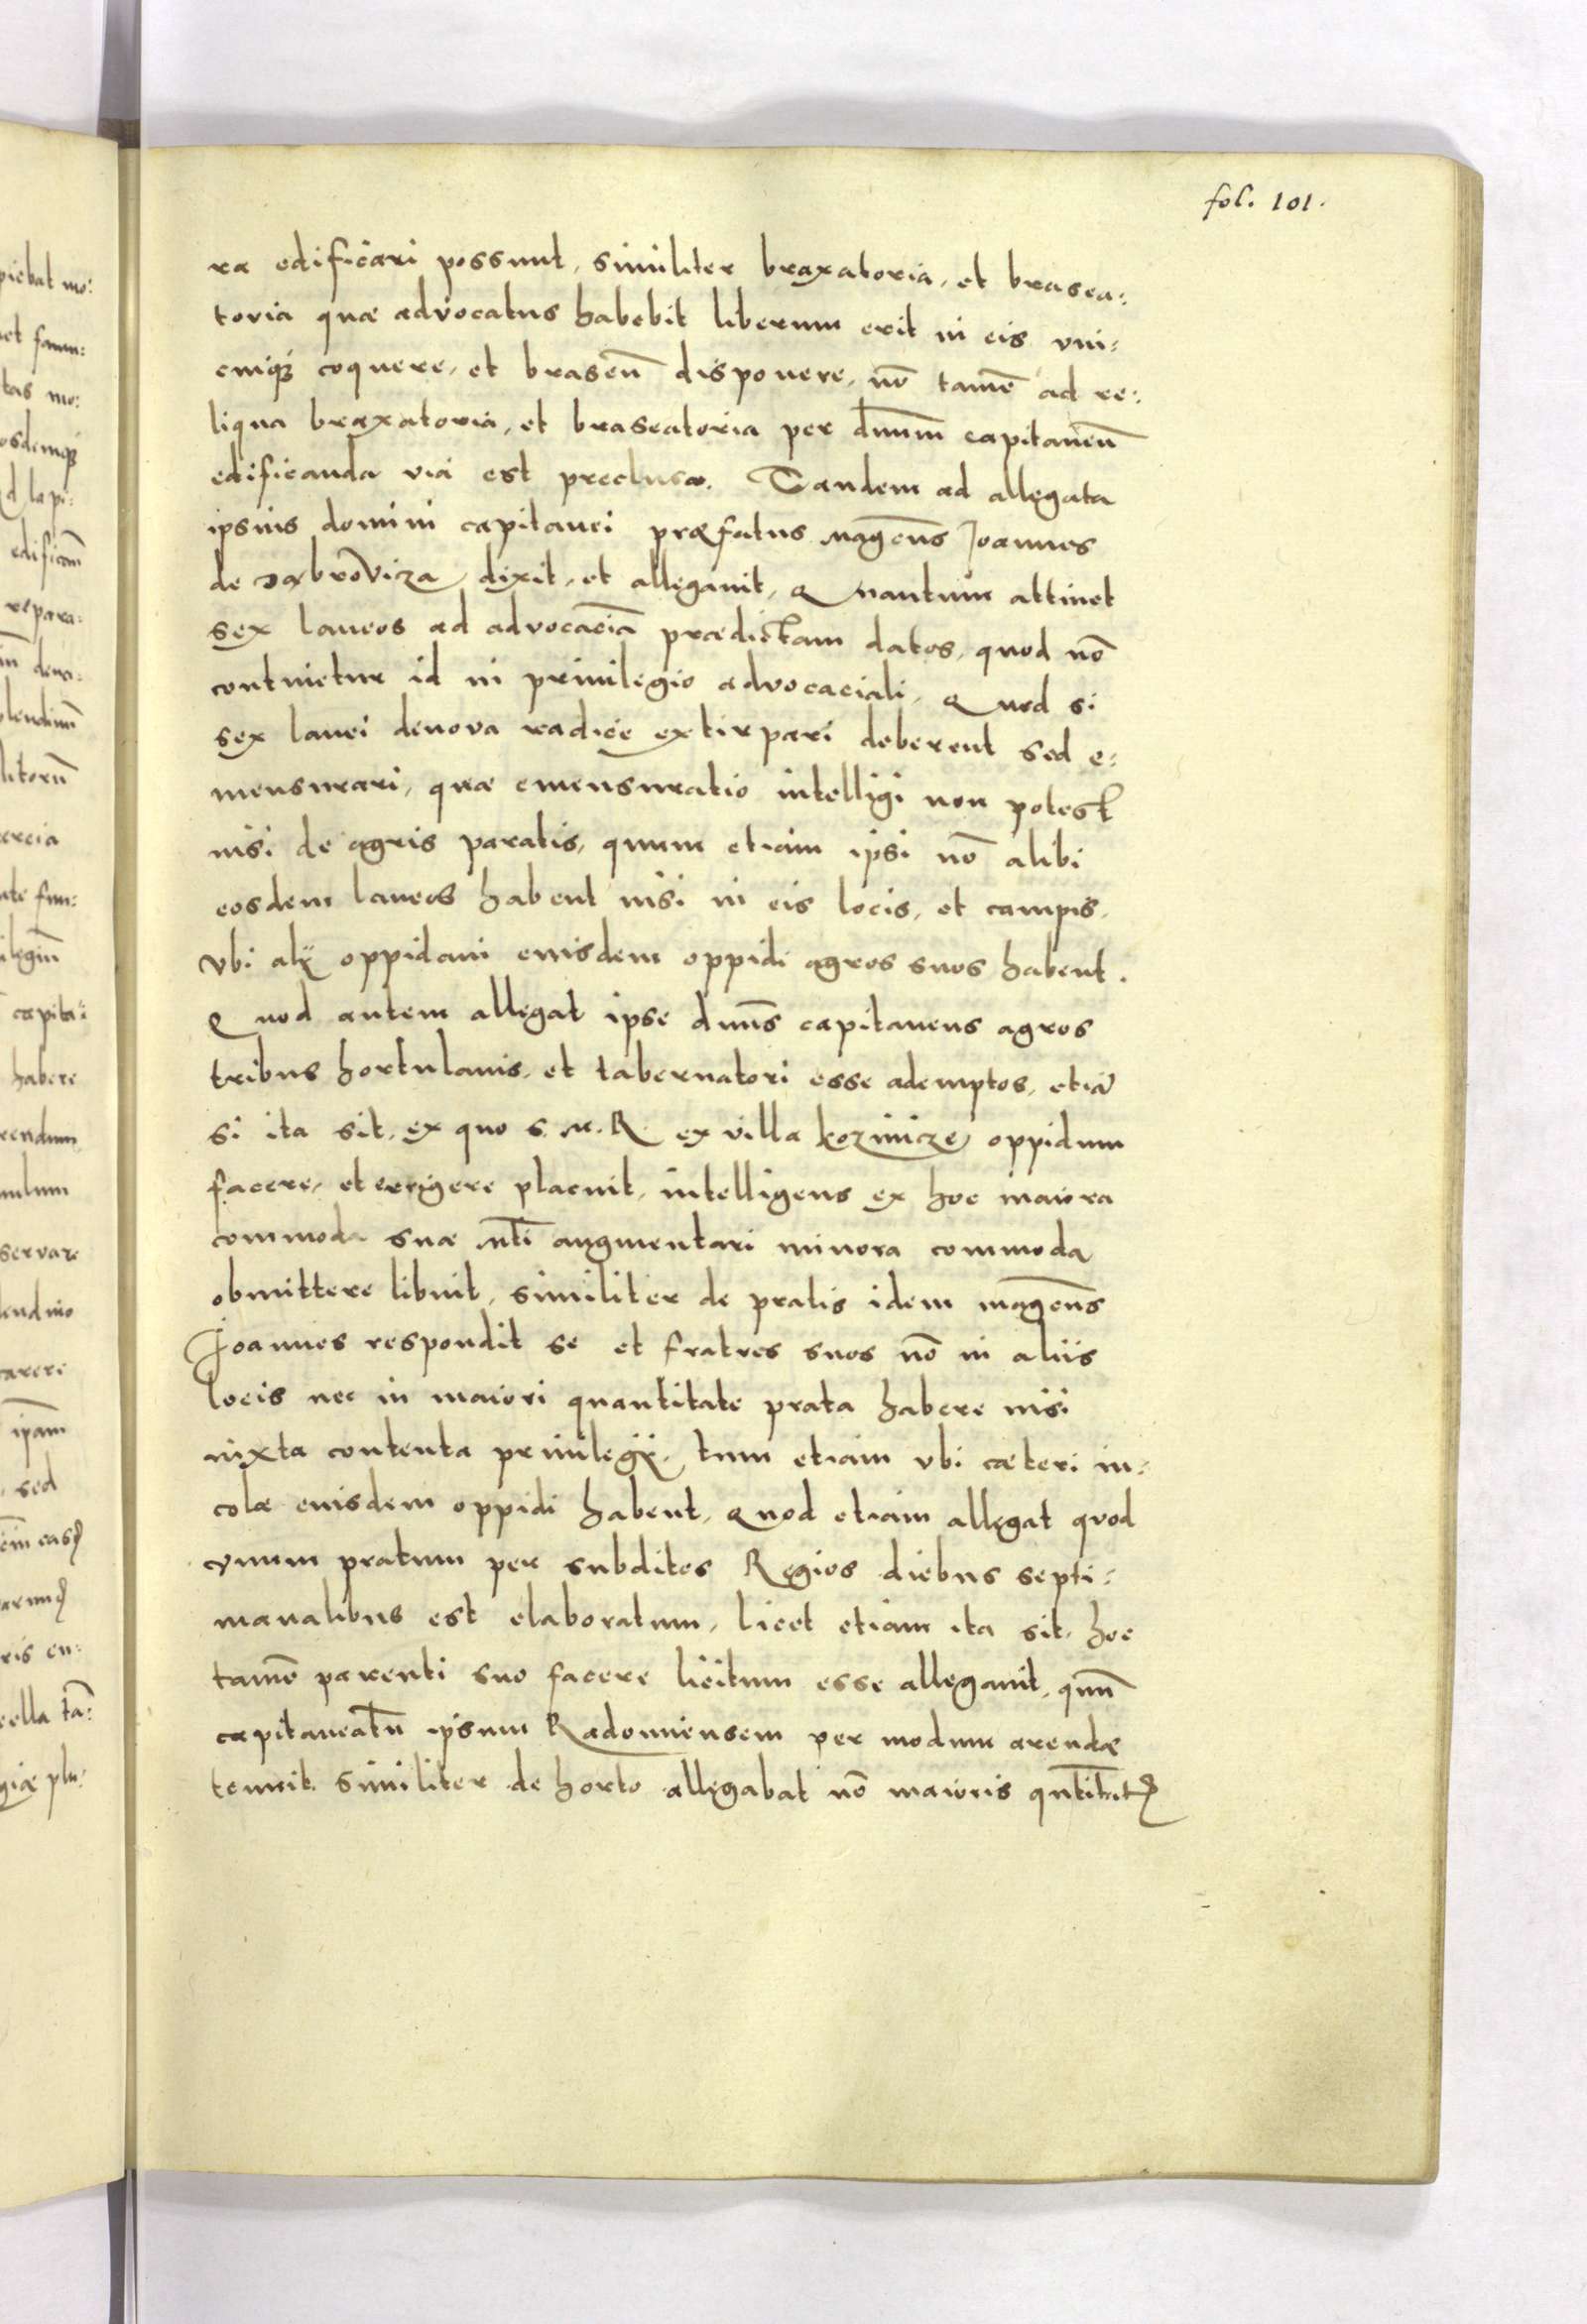 fol. 101.
ra edificari possunt, similiter braxatoria, et brasea:
toria quae advocatus habebit liberum erit in eis vni:
cuiq3 coquere, et braseū disponere, nō tamē ad re:
liqua braxatoria, et braseatoria per dn̄um capitaneū
edificanda via est preclusa. Tandem ad allegata
ipsius domini capitanei præfatus Magcn̄s Joannes
de Dabrovicza dixit, et allegauit, Quantum attinet
sex laneos ad advocaciā prædictam datos, quod nō
continetur id in priuilegio advocaciali, Quod si
sex lanei denova radice extirpari deberent sed e:
mensurari, quæ emensuratio intelligi non potest
nisi de agris paratis, quum etiam ipsi nō alibi
eosdem laneos habent nisi in eis locis, et campis,
vbi alÿ oppidani eiusdem oppidi agros suos habent.
Quod autem allegat ipse dn̄us capitaneus agros
tribus hortulanis, et tabernatori esse ademptos, etiā
si ita sit, ex quo S. M. R. ex villa kozinicze oppidum
facere, et erigere placuit, intelligens ex hoc maiora
commoda suæ Mti augmentari minora commoda
obmittere libuit, similiter de pratis idem magcn̄s
Joannes respondit se et fratres suos nō in aliis
locis nec in maiori quantitate prata habere nisi
iuxta contenta priuilegÿ, tum etiam vbi cæteri in:
colæ eiusdem oppidi habent, Quod etiam allegat quod
vnum pratum per subditos Regios diebus septi:
manalibus est elaboratum, licet etiam ita sit, hoc
tamē parenti suo facere licitum esse allegauit, quū
capitaneatū ipsum Radomiensem per modum arendæ
tenuit. Similiter de horto allegabat nō maioris
piebat mo:
et fam:
tas mo:
osdemq3
d lapi:
edificam̄
repara:
litorū
ilegiū
capita:
habere
rendum
servare
ipam
sed
ris eu: